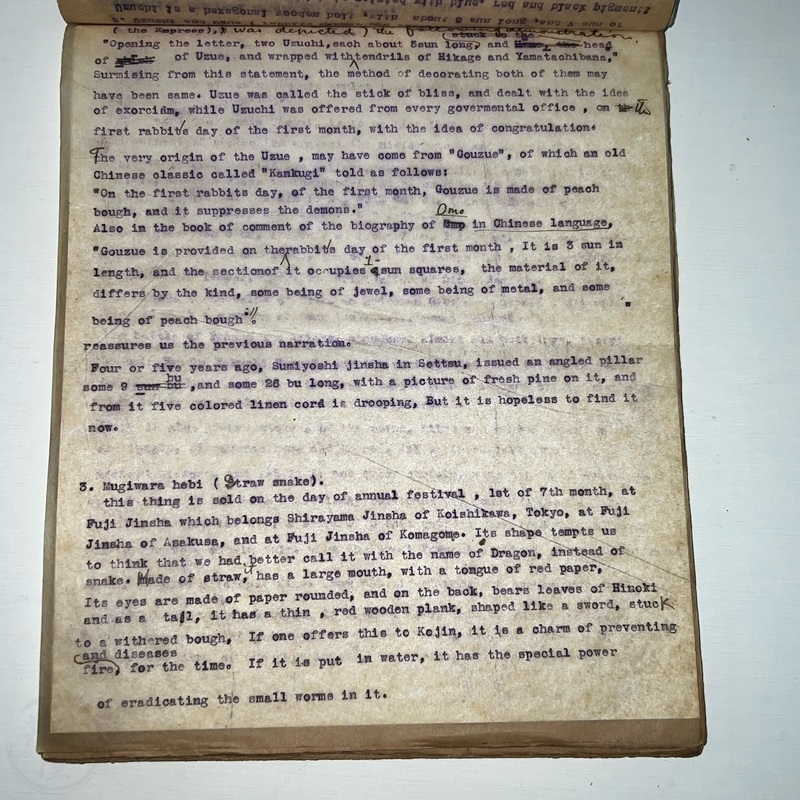 (the Empress), I was depicted) the following demonstration.
"Opening the letter, two Uzuchi,each about 5sun long, and stuck to the head
of of Uzue, and wrapped withtendrils of Hikage and Yamatachibana,"
Surmising from this statement, the method of decorating both of them may
have been same. Uzue was called the stick of bliss, and dealt with the idea
of exorcidm, while Uzuchi was offered from every govermental office , on the
first rabbit's day of the first month, with the idea of congratulation.
The very origin of the Uzue , may have come from "Gouzue", of which an old
Chinese classic called "Kankugi" told as follows:
"On the first rabbits day, of the first month, Gouzue is made of peach
bough, and it suppresses the demons."
Also in the book of comment of the biography of Omo in Chinese language,
"Gouzue is provided on therabbit's day of the first month , It is 3 sun in
length, and the sectionof it occupies 1 sun squares, the material of it,
differs by the kind, some being of jewel, some being of metal, and some
being of peach bough".
reassures us the previous narration.
Four or five years ago, Sumiyoshi jinsha in Settsu, issued an angled pillar
some 9 bu ,and some 26 bu long, with a picture of fresh pine on it, and
from it five colored linen cord is drooping, But it is hopeless to find it
now.
3. Mugiwara hebi ( Straw snake).
this thing is sold on the day of annual festival , 1st of 7th month, at
Fuji Jinsha which belongs Shirayama Jinsha of Koishikawa, Tokyo, at Fuji
Jinsha of Asakusa, and at Fuji Jinsha of Komagome. Its shape tempts us
to think that we had better call it with the name of Dragon, instead of
snake. Made of straw, it has a large mouth, with a tongue of red paper,
Its eyes are made of paper rounded, and on the back, bears leaves of Hinoki
and as a tail, it has a thin , red wooden plank, shaped like a sword, stuck
to a withered bough, If one offers this to Kojin, it is a charm of preventing
and diseases
fire, for the time. If it is put in water, it has the special power
of eradicating the small worms in it.